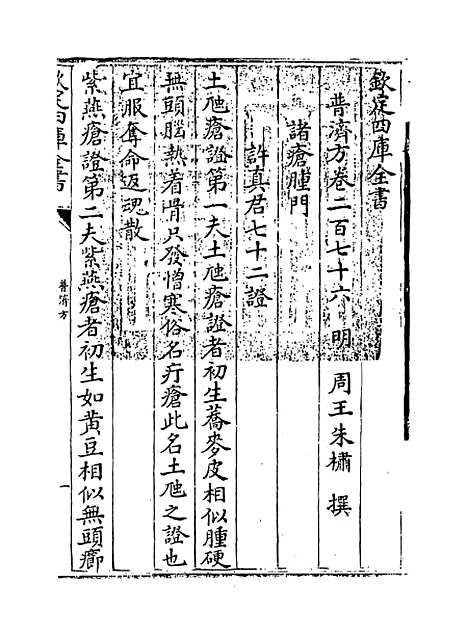 欽定四庫全書
普濟方卷二百七十六 明 周王朱橚 撰
諸瘡腫門
許真君七十二證
土虺瘡證第一夫土虺瘡證者初生蕎麥皮相似腫硬
無頭腦熱着骨只發憎寒俗名疔瘡此名土虺之證也
宜服奪命返魂散
紫燕瘡證第二夫紫燕瘡者初生如黄豆相似無頭癤
欽定四庫全書
普濟方
一